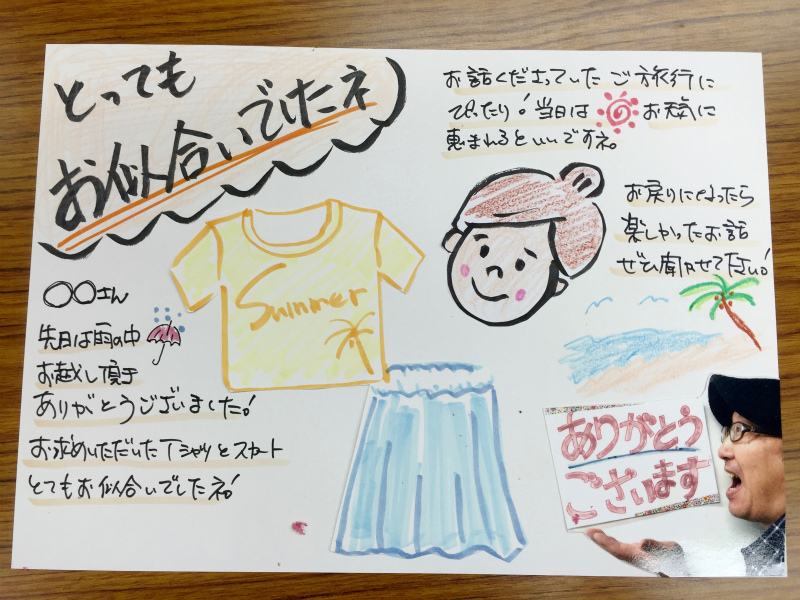 とっても
お似合いでしたネ
〇〇さん
先日は雨の中
お越し頂き
ありがとうございました!
お求めいただいたTシャツとスカート
とてもお似合いでしたネ!
Summer
お話くださっていたご旅行に
ぴったり!当日はお天気に
恵まれるといいですネ。
お戻りになったら
楽しかったお話
ぜひ聞かせて下さい!
ありがとう
ございます